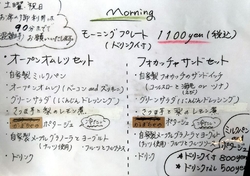 土曜 祝日
90分まで
お願いいたします
Morning
モーニングプレート 1100yen (税込)
(ドリンク付)
オープンオムレツセット
・自家製ミルクパン
・オープンオムレツ (ベーコン and ズッキーニ)
・グリーンサラダ (にんじんドレッシング)
ポタージュ
・自家製メープルグラノーラとヨーグルト
(ナッツ使用)
・ドリンク
フォカッチャサンドセット
・自家製フォカッチャサンドイッチ
・グリーンサラダ (にんじんドレッシング)
ポタージュ
・自家製メープルグラノーラとヨーグルト
(ナッツ使用) フルーツミックス
・ドリンク
ミルクパン
ドリンク付 800yen
ドリンクなし 500yen